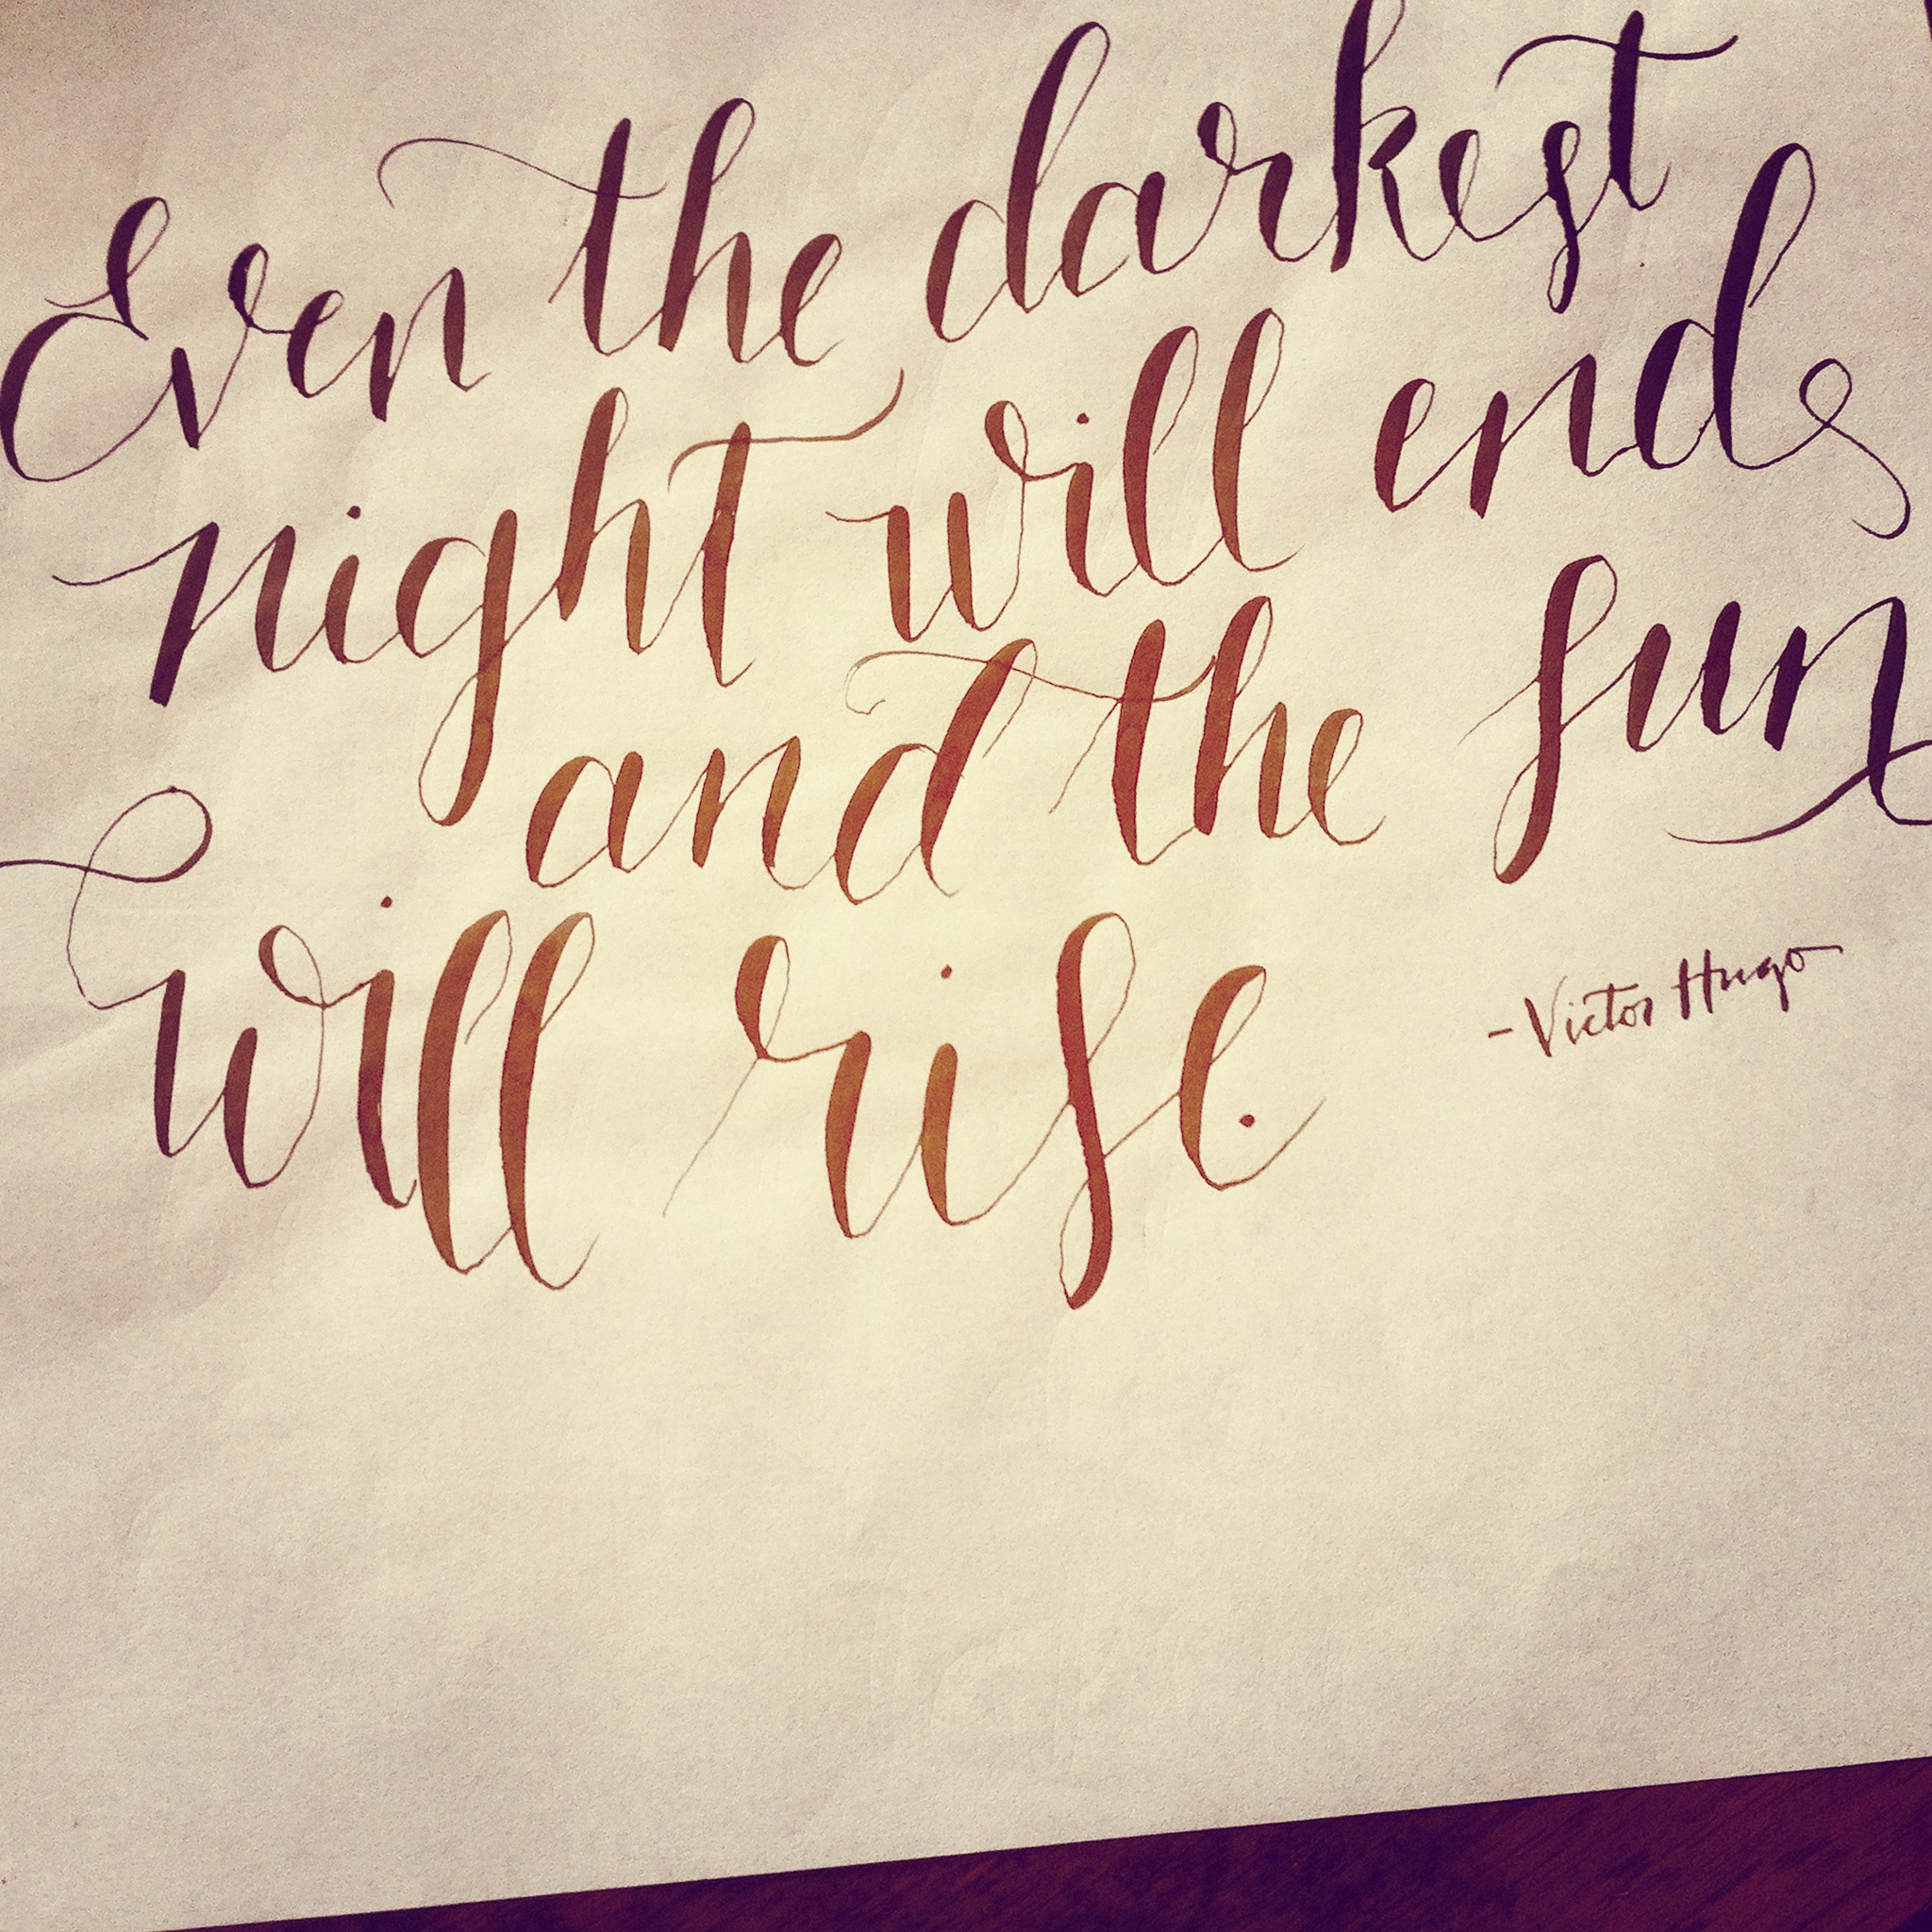 Even the darkest
night will end
and the sun
will rise.
-Victor Hugo